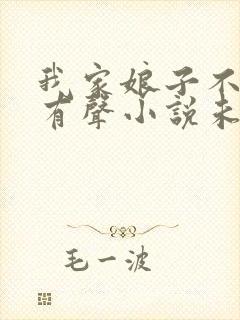 我家娘子不
有聲小說未
毛一波